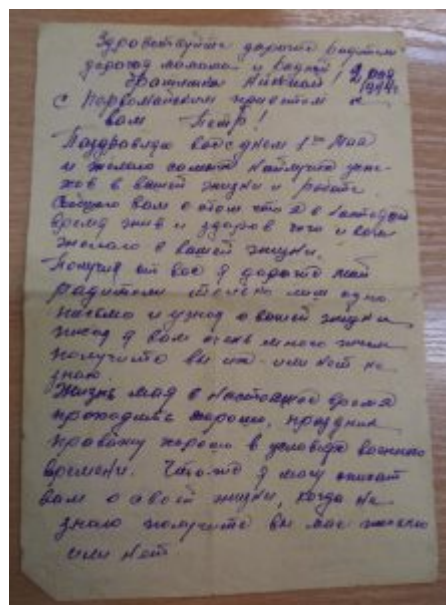 Здравствуйте дорогие радители
дорогая мамаша и родной
братишка Николай! 2 мая
1944г
С Первомайским приветом к
вам Петр!
Поздравляю вас с днем 1го Мая
и желаю самых наилучших успе-
хов в вашей жизни и работе.
Сообщаю вам о том что я в настоящей
время жив и здоров чего и вам
желаю в вашей жизни.
Получил от вас я дорогие мои
радители только лиш одно
письмо и узнал о вашей жизни
писал я вам очень много писем
получите вы их или нет не
знаю.
Жизнь мая в настоящее время
проходить хорошо, праздник
правожу хорошо в условиях военного
времени. Чтоже я могу описат
вам о своей жизни, когда не
знаю получите вы мае письмо
или нет